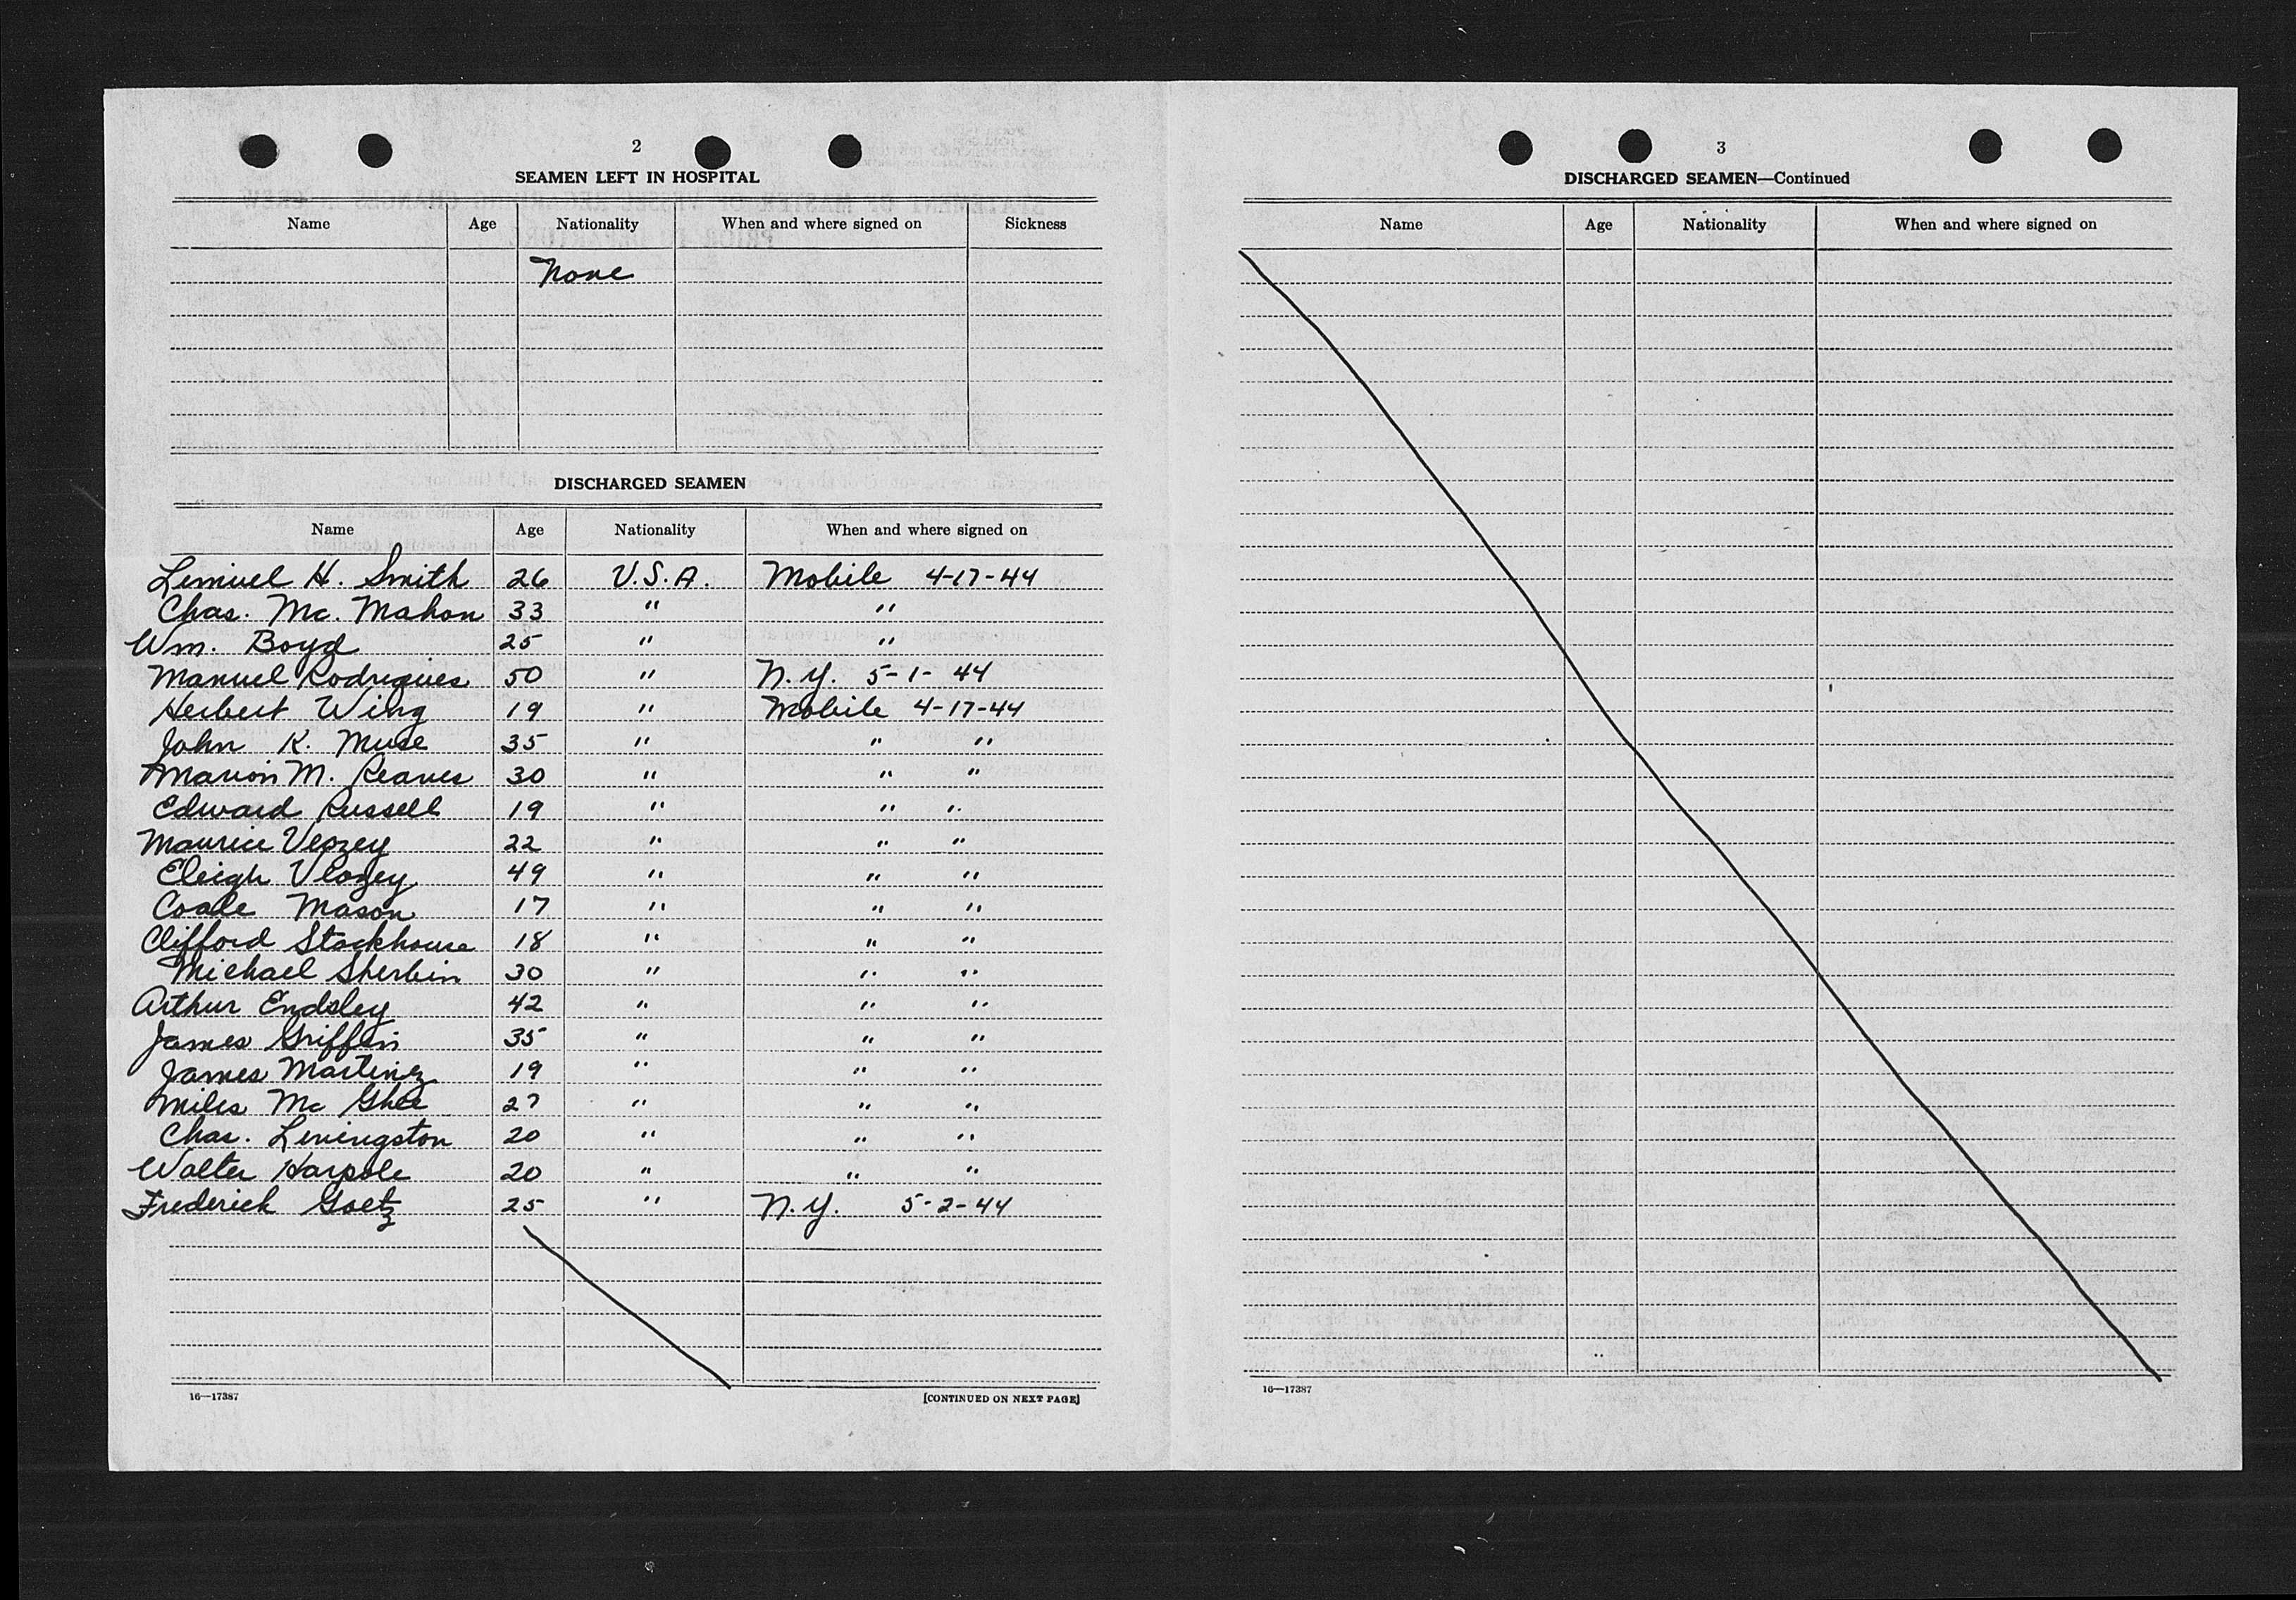 2
SEAMEN LEFT IN HOSPITAL
Name Age Nationality When and where signed on Sickness
None
DISCHARGED SEAMEN
Name Age Nationality When and where signed on
Lemuel H. Smith 26 U.S.A. Mobile 4-17-44
Chas. Mc. Mahon 33 " "
Wm. Boyd 25 " "
Manuel Rodrigues 50 " N.Y. 5-1-44
Herbert Wing 19 " Mobile 4-17-44
John K. Muse 35 " " "
Marion M. Reaves 30 " " "
Edward Russell 19 " " "
Maurice Veazey 22 " " "
Eleigh Veazey 49 " " "
Coale Mason 17 " " "
Clifford Stackhouse 18 " " "
Michael Sherbin 30 " " "
Arthur Endsley 42 " " "
James Griffin 35 " " "
James Martinez 19 " " "
Miles Mc Ghee 27 " " "
Chas. Levingston 20 " " "
Walter Harpole 20 " " "
Frederick Goetz 25 " N.Y. 5-2-44
16—17387 [CONTINUED ON NEXT PAGE]
3
DISCHARGED SEAMEN—Continued
Name Age Nationality When and where signed on
16—17387